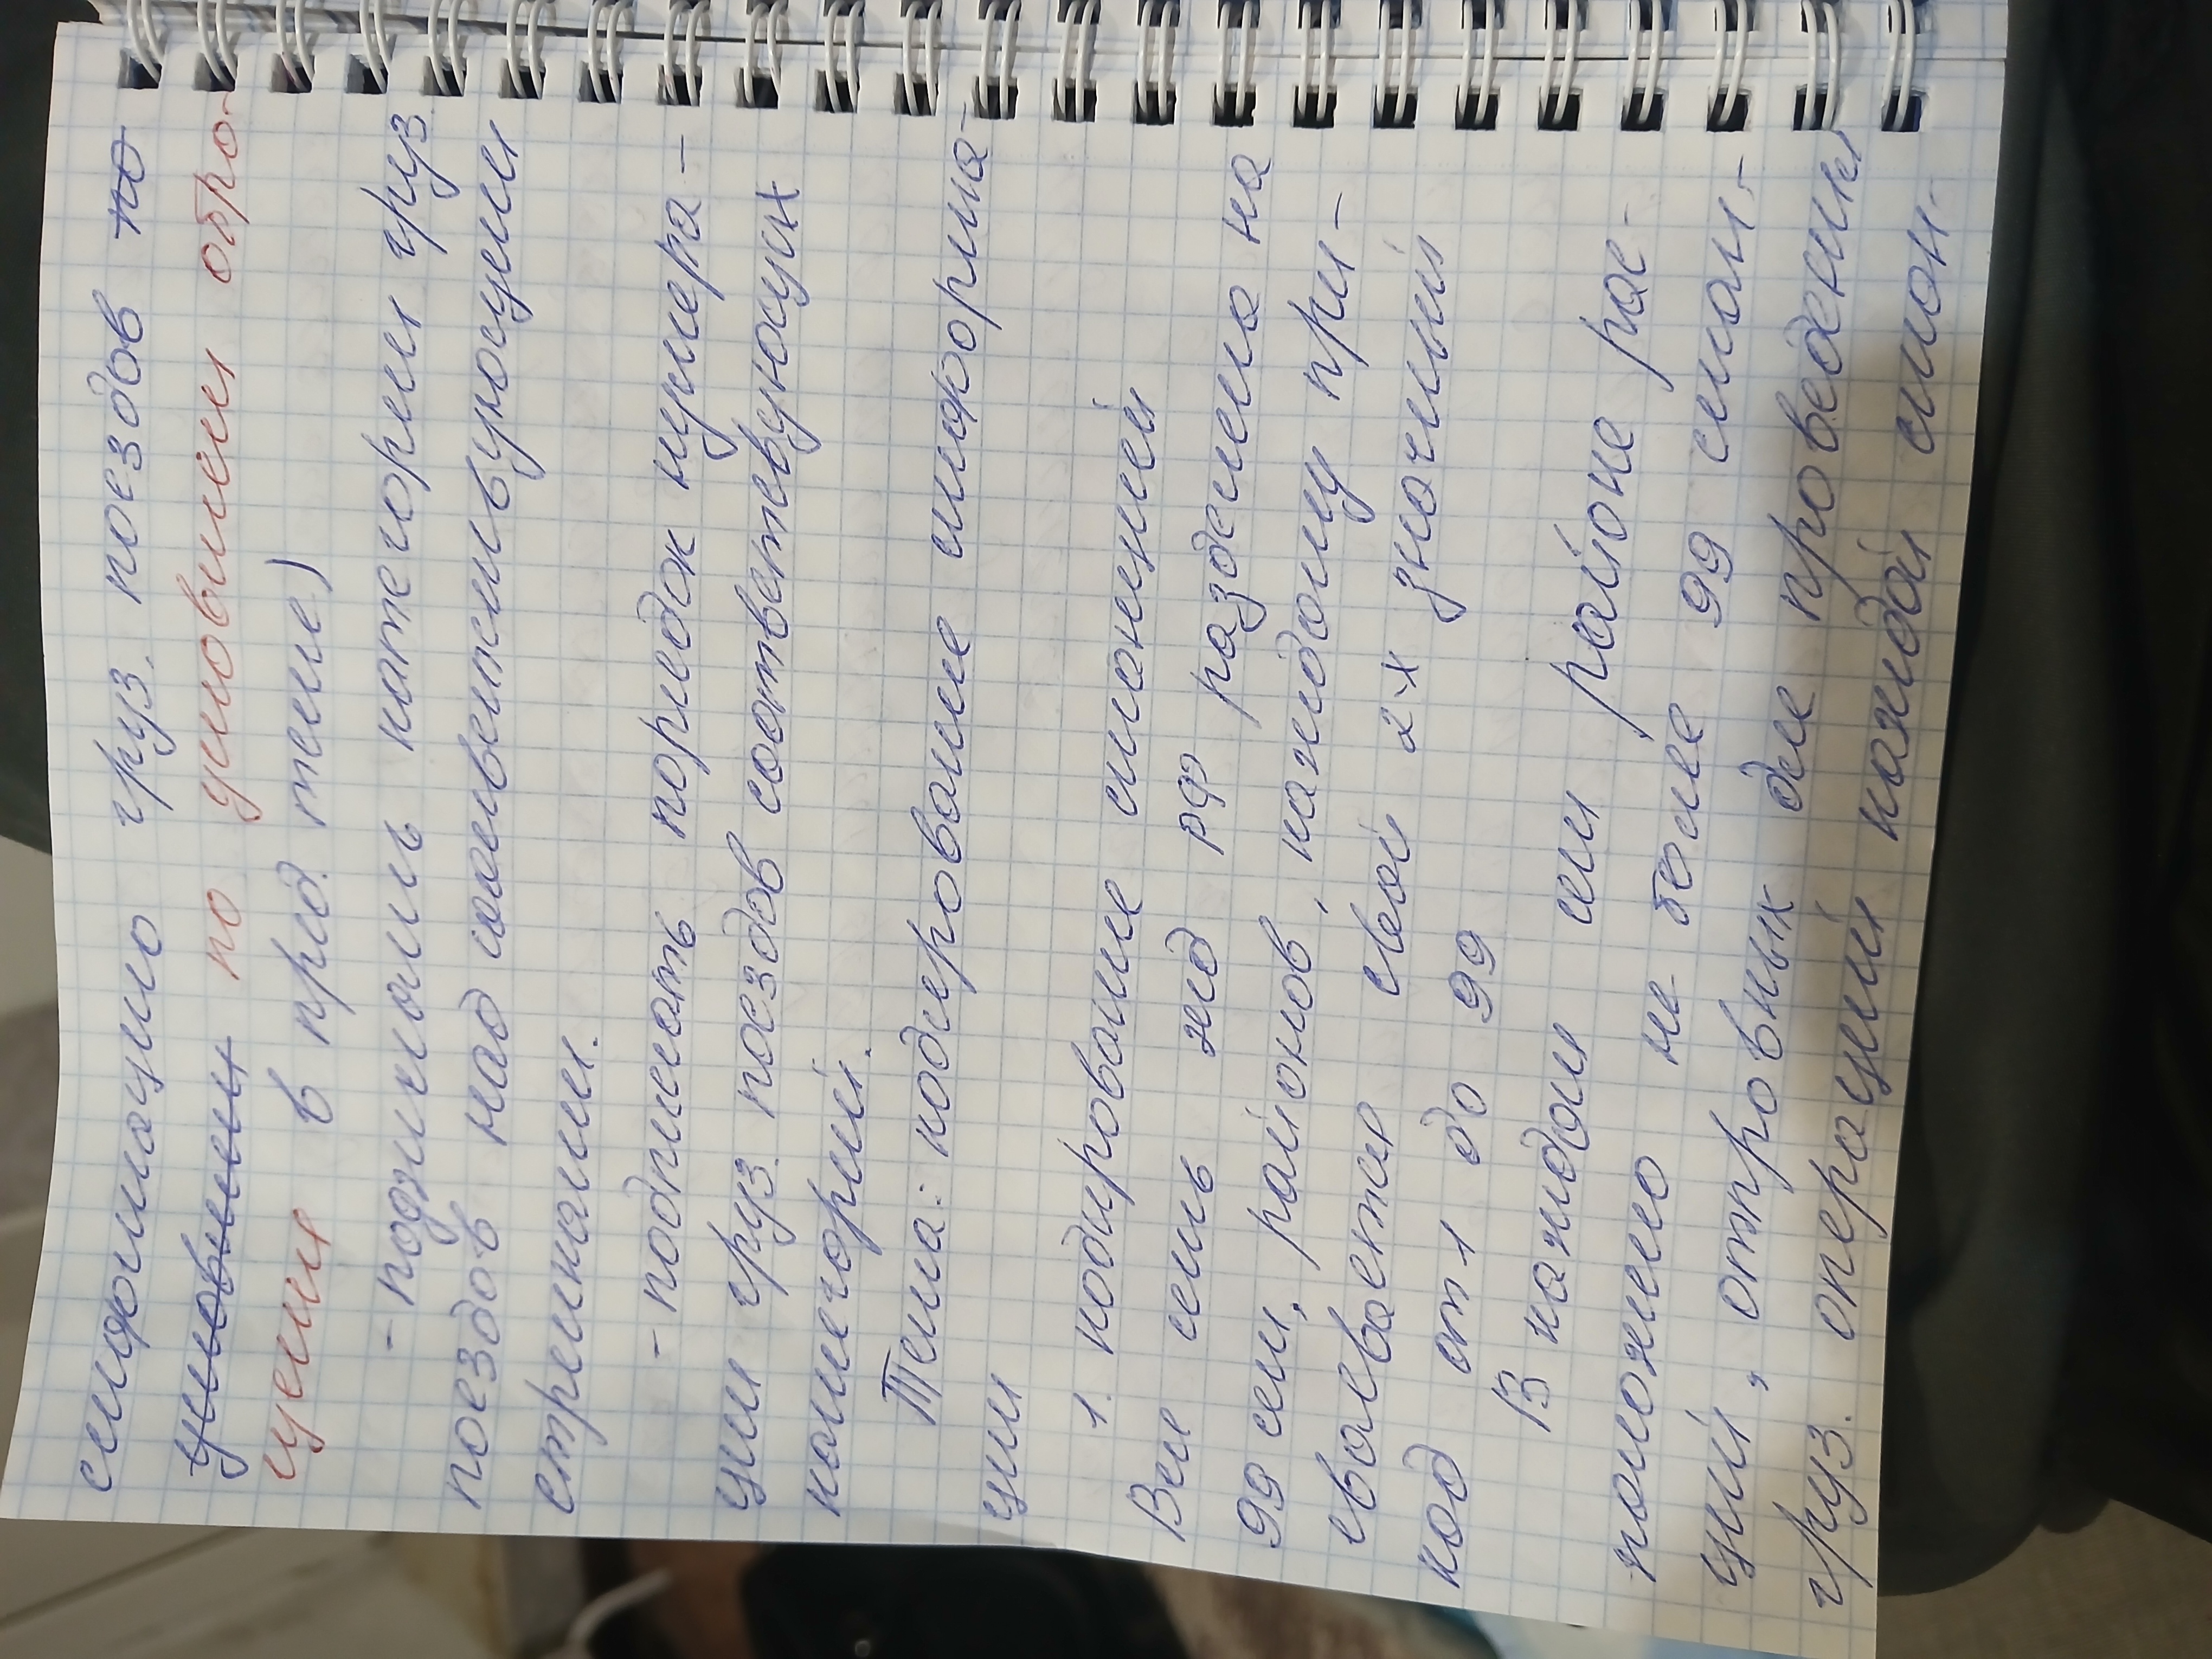 симфикацию груз. поездов по
условиям по условиям обра-
щения в пред. теме)
- поднималь категории груз
поездов над соответствующими
стрелками.
- подписать порядок нумера-
ции груз. поездов соответвующих
категорий.
Тема: кодирование информа-
ции
1. кодирование станций
Вся сеть жд РФ разделена на
99 сет. районов, каждому при-
сваевается свой 2-х значный
код от 1 до 99
В каждом сет районе рас-
положено не более 99 стан-
ций, открытых для проведения
груз. операций каждой стан-